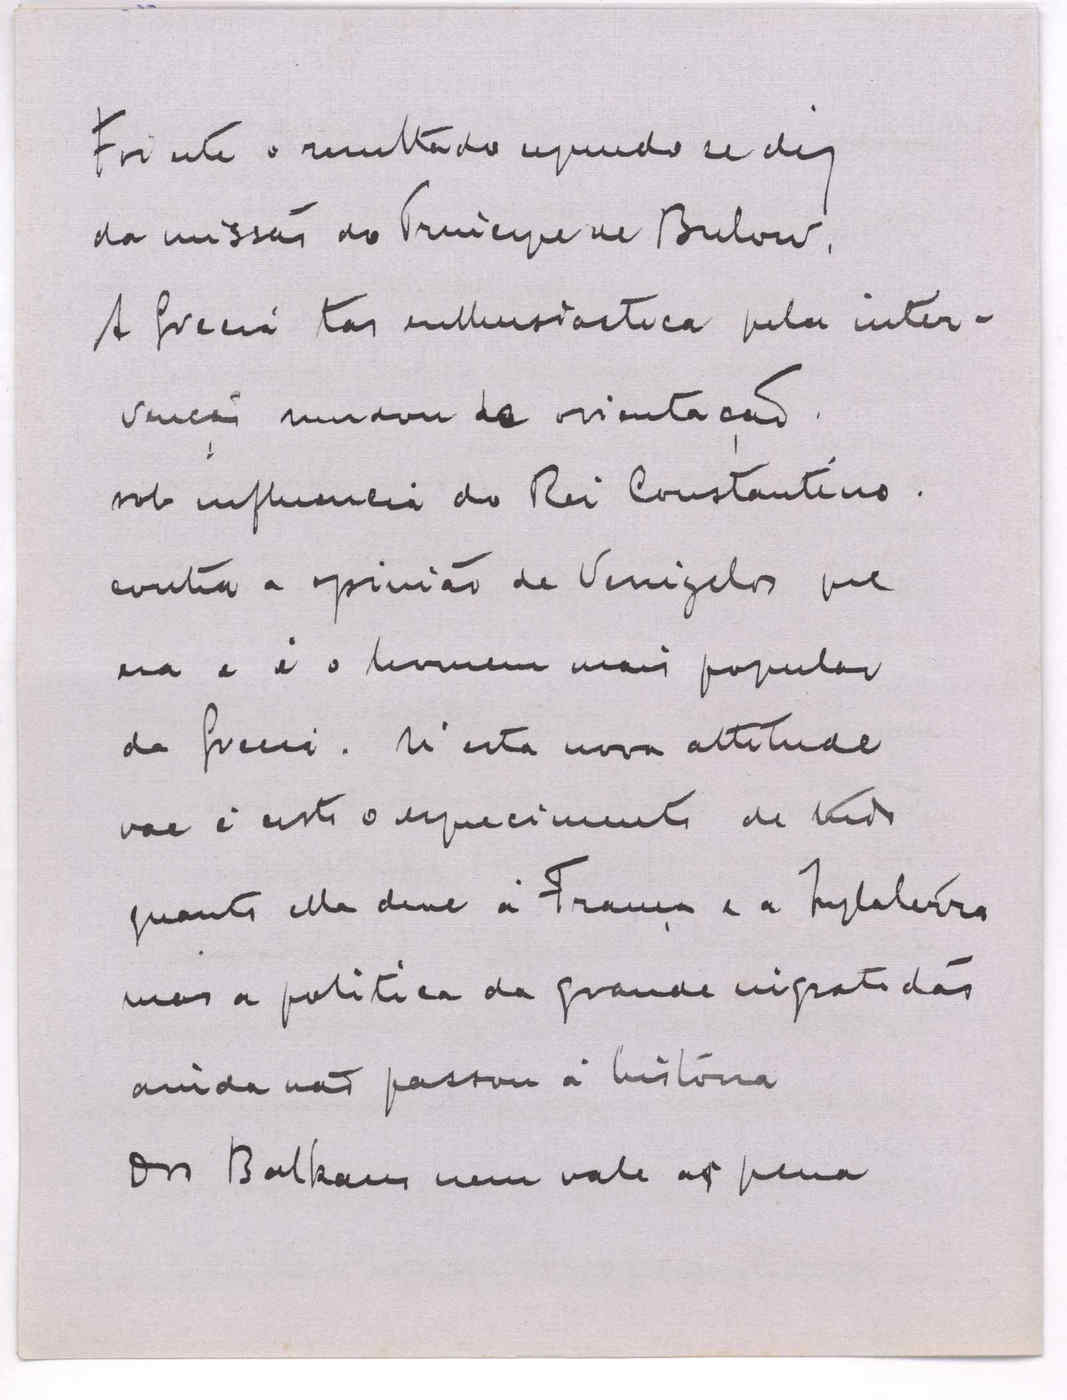 Foi este o resultado segundo se diz
da missão do Principe de Bulow.
A Grecia tão enthusiastica pela inter-
venção mudou de orientação.
sob influencia do Rei Constantino.
contra a opinião de Venizelos que
era e é o homem mais popular
da Grecia. N'esta nova attitude
vae é certo o esquecimento de tudo
quanto ella deve á França e a Inglaterra
mas a politica da grande ingratidão
ainda não passou á história
Dos Balkans nem vale a pena